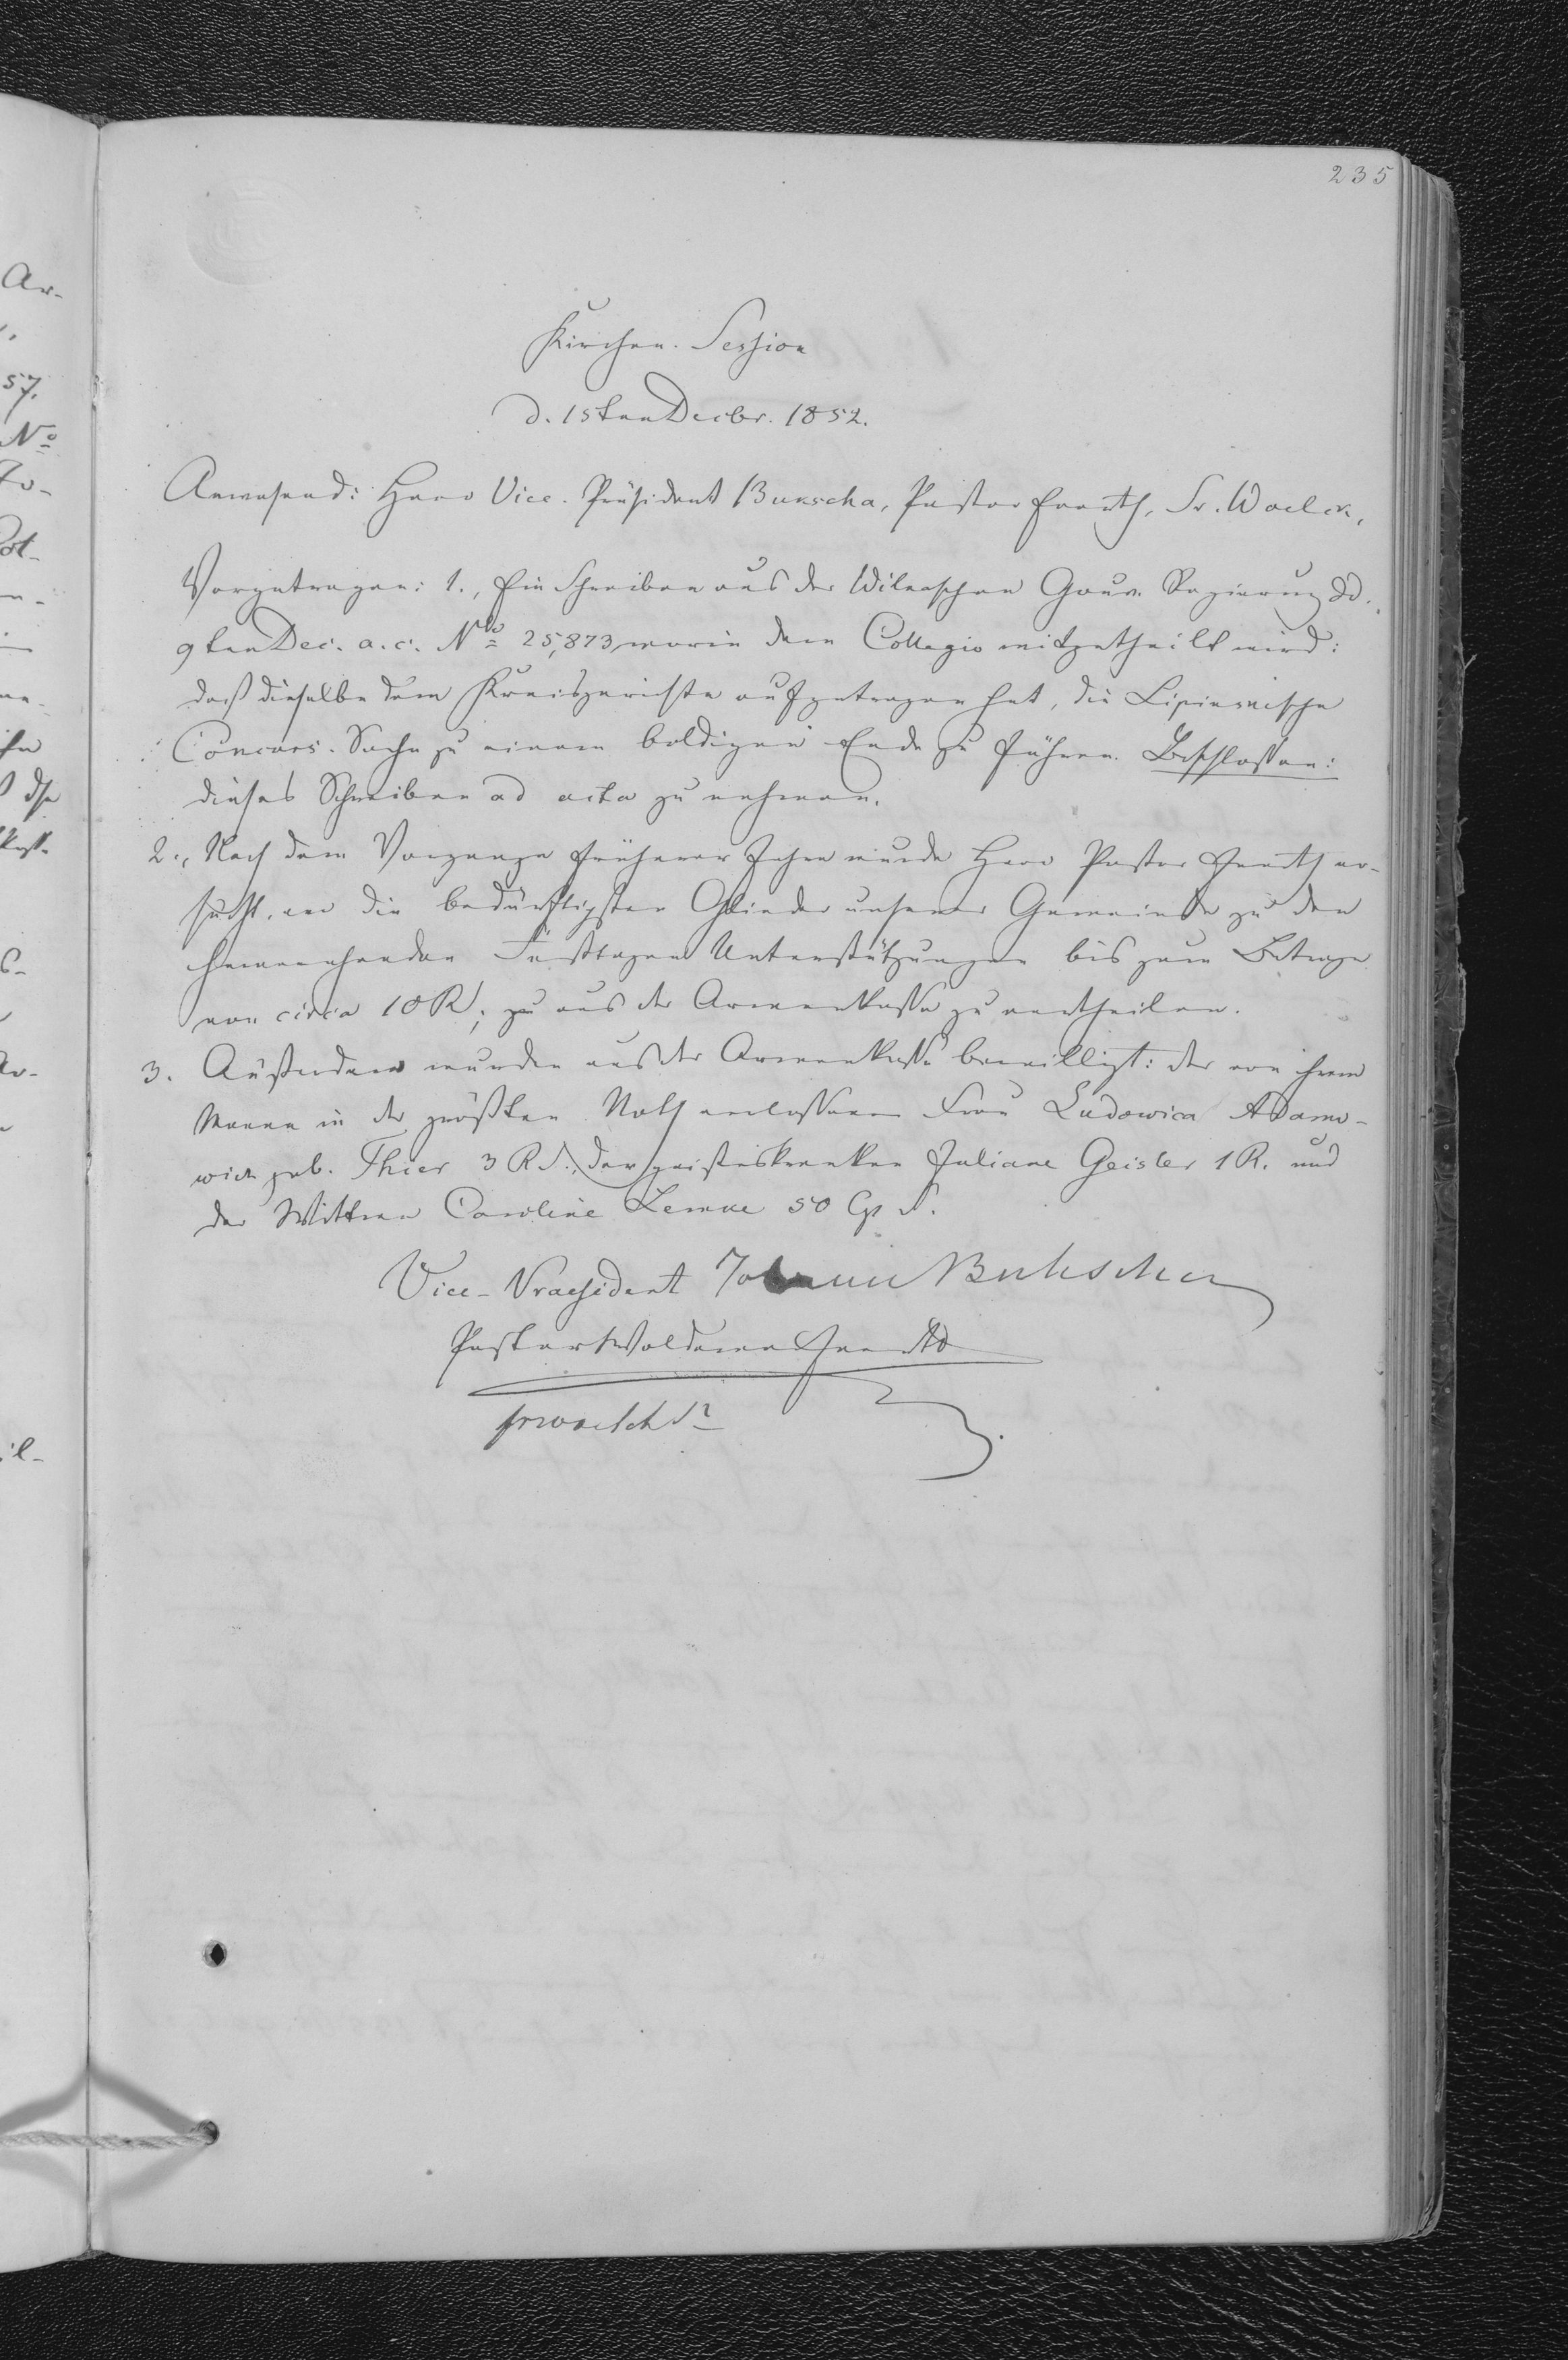 235
Kirchen-Session
d. 15ten Decbr. 1852.
Anwesend: Herr Vice-Präsident Bukscha, Pastor Everth, Sr. Woelck,
Vorgetragen: 1., Ein Schreiben aus der Wilnaschen Gouv. Regierung dd.
9ten Dec. a. c. No 25,873, worin dem Collegio mitgetheilt wird:
daß dieselbe dem Kreisgerichte aufgetragen hat, die Lipinskische
Concurs-Sache zu einem baldigen Ende zu führen. Beschlossen:
dieses Schreiben ad acta zu nehmen.
2., Nach dem Vorgange früherer Jahre wurde Herr Pastor Everth er-
sucht, an die bedürftigsten Glieder unserer Gemeinde zu den
herannahenden Festtagen Unterstützungen bis zum Betrage
von circa 10 R, zu aus der Armenkasse zu vertheilen.
3. Außerdem wurden aus der Armenkasse bewilligt: der von ihrem
Manne in der größten Noth verlassenen Frau Ludowica Adamo-
wicz geb. Thier 3 R S., der geisteskranken Juliane Geisler 1 R. und
der Wittwe Caroline Lemke 50 Cp S.
Vice-Praesident Johann Bukscha
Pastor Woldemar Everth
Woelck Sr
Ar-
57.
No